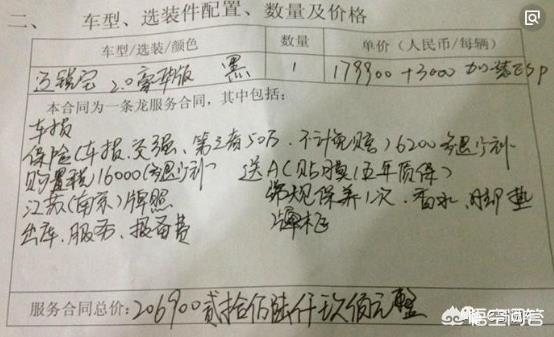 二、 车型、选装件配置、数量及价格
车型/选装/颜色 数量 单价（人民币/每辆）
迈锐宝 2.0豪华版 黑 1 179900+3000 加装ESP
本合同为一条龙服务合同，其中包括：
车损
保险（车损、交强、第三者50万、不计免赔）6200多退少补
购置税16000（多退少补） 送A（贴膜（五年质保）
江苏（南京）牌照 常规保养1次、香水、脚垫
出库、服务、报备费 牌框
服务合同总价：206900贰拾佰陆仟玖佰元整
悟空问答